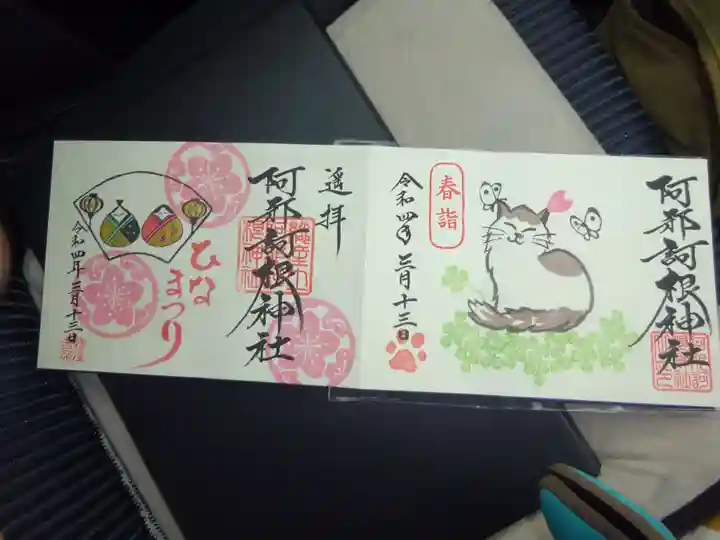 阿邪訶根神社
春詣
令和四年三月十三日
遥拝
阿邪訶根神社
ひなまつり
令和四年三月十三日